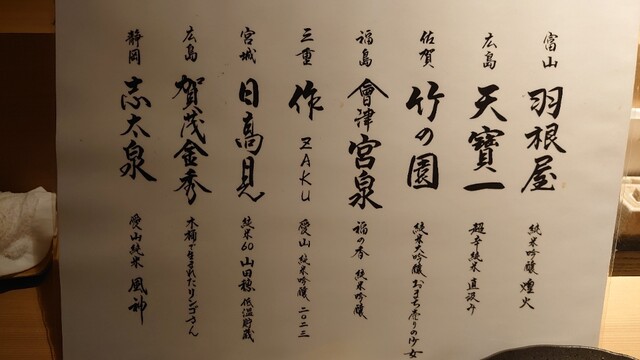 富山 羽根屋 純米吟醸 煌火
広島 天寶一 超辛純米 直汲み
佐賀 竹の園 純米大吟醸 おまち巻りの少女
福島 會津宮泉 福の香 純米吟醸
三重 作 ZAKU 愛山 純米吟醸 二〇二三
宮城 日高見 純米60 山田穂 低温貯蔵
広島 賀茂金秀 木桶で生まれたリンゴさん
静岡 志太泉 愛山純米 風神